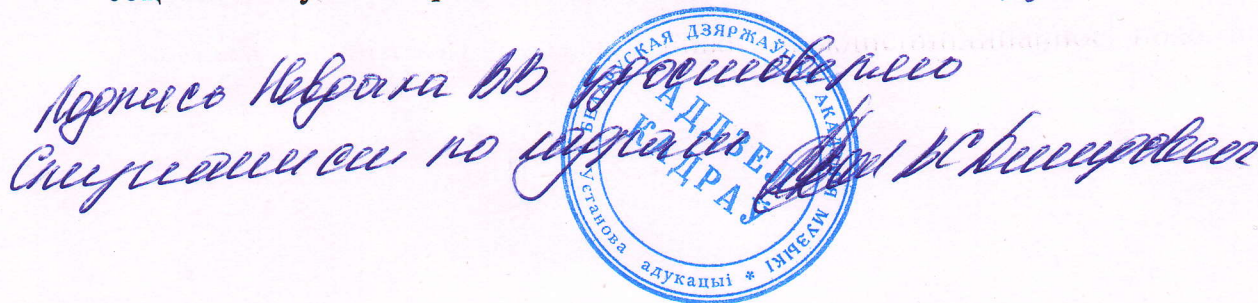 Подпись Невдаха ВВ удостоверяю
Специалист по кадрам ВС Дмитрович
БЕЛАРУСКАЯ ДЗЯРЖАЎНАЯ АКАДЭМІЯ МУЗЫКІ * Установа адукацыі
АДДЗЕЛ
КАДРАЎ